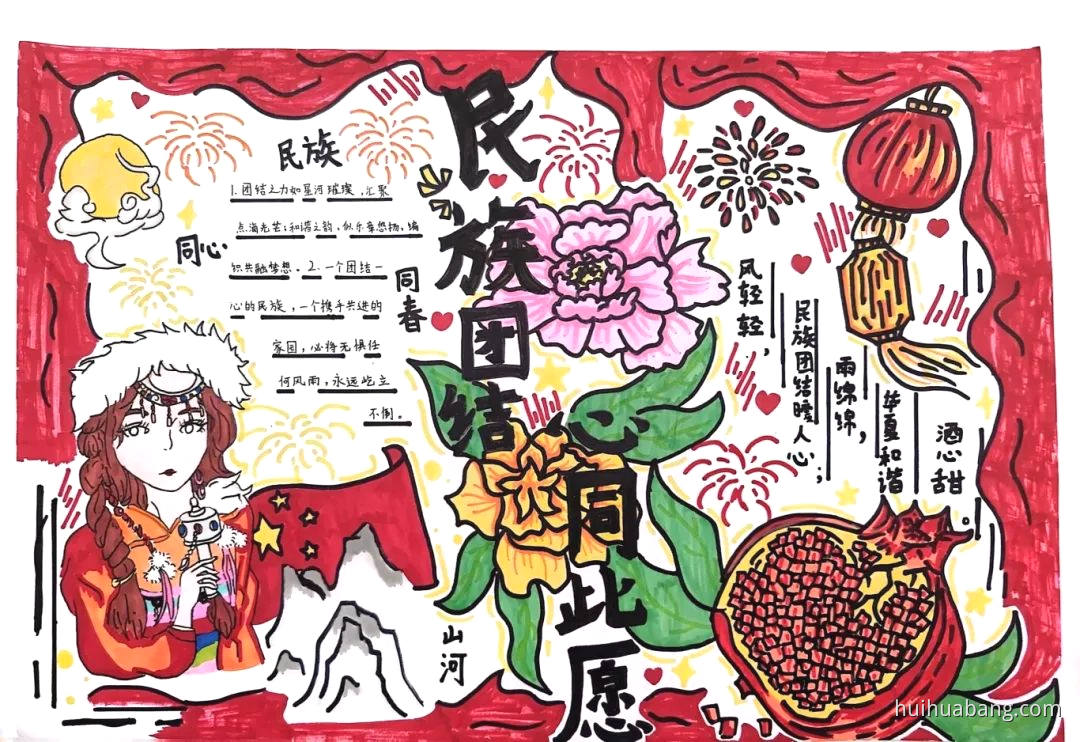 民族团结
心同此愿
民族
1.团结之力如星河璀璨,汇聚
点滴光芒;和谐之韵,似乐章悠扬,编
织共融梦想。2.一个团结一
心的民族,一个携手共进的
家园,必将无惧任
何风雨,永远屹立
不倒。
同心
同春
山河
风轻轻,
民族团结暖人心;
雨绵绵,
华夏和谐
酒心甜。
huihuabang.com